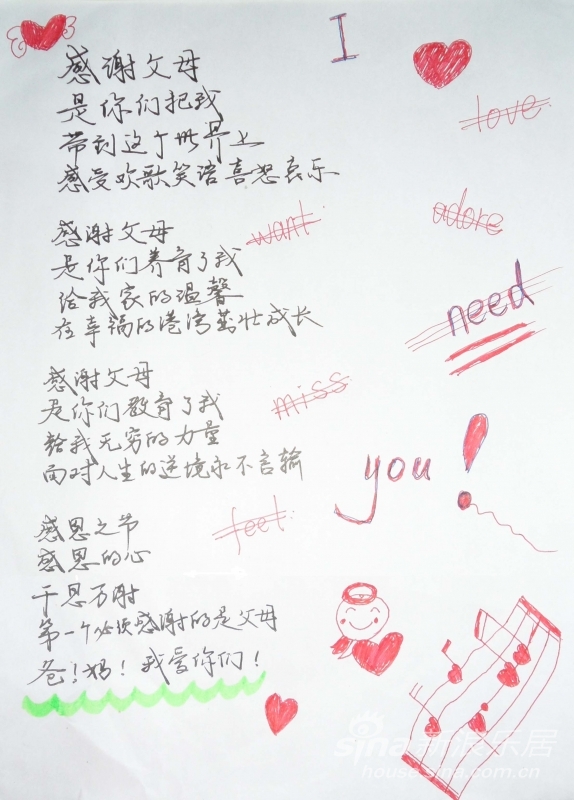 I
love
感谢父母
是你们把我
带到这个世界上
感受欢歌笑语喜怒哀乐
want
adore
感谢父母
是你们养育了我
给我家的温馨
在幸福的港湾茁壮成长
need
感谢父母
是你们教育了我
给我无穷的力量
面对人生的逆境永不言输
miss
you!
感恩之节
感恩的心
千恩万谢
第一个必须感谢的是父母
爸!妈!我爱你们!
feel
sina新浪乐居
house.sina.com.cn